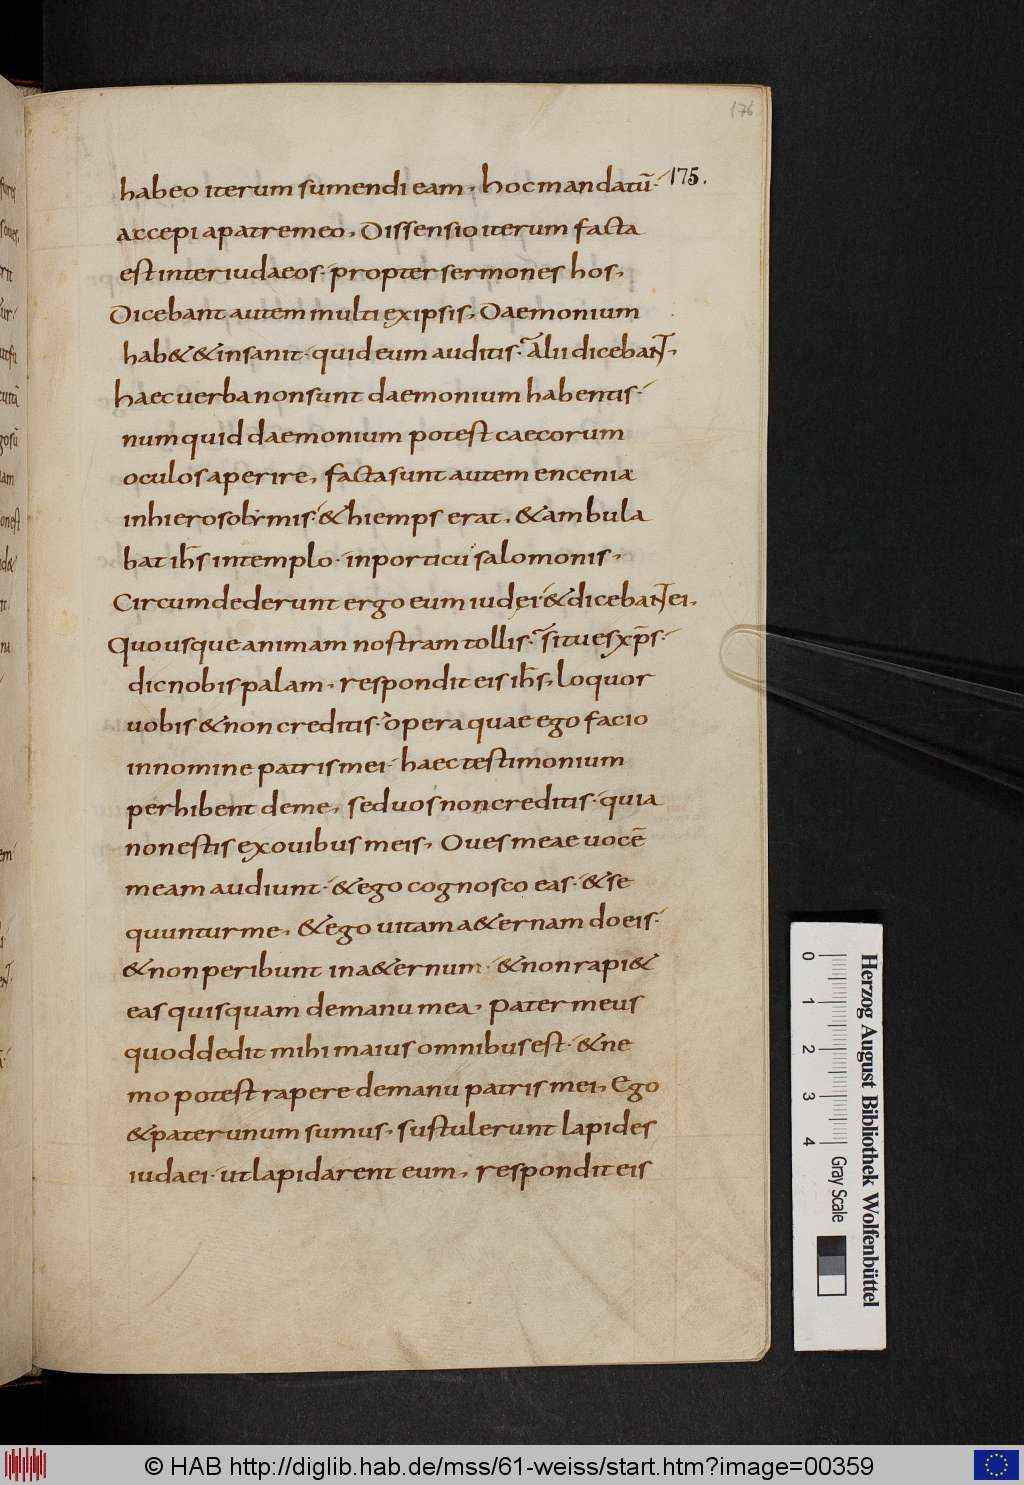 176
175.
habeo iterum sumendi eam, hoc mandatū·
accepi a patre meo, Dissensio iterum facta
est inter iudaeos· propter sermones hos,
Dicebant autem multi ex ipsis, Daemonium
hab& & insanit· quid eum auditis· alii dicebant,
haec uerba non sunt daemonium habentis·
numquid daemonium potest caecorum
oculos aperire, facta sunt autem encenia
in hierosolymis· & hiemps erat, & ambula
bat ihs in templo· in porticu salomonis,
Circumdederunt ergo eum iudei & dicebant ei,
Quousque animam nostram tollis· si tu es xps·
dic nobis palam, respondit eis ihs, loquor
uobis & non creditis· opera quae ego facio
in nomine patris mei· haec testimonium
perhibent de me, sed uos non creditis· quia
non estis ex ouibus meis, Oues meae uocē
meam audiunt· & ego cognosco eas· & se
quuntur me, & ego uitam a&ernam do eis·
& non peribunt in a&ernum· & non rapi&
eas quisquam de manu mea, pater meus
quod dedit mihi maius omnibus est· & ne
mo potest rapere de manu patris mei, Ego
& pater unum sumus, sustulerunt lapides
iudaei· ut lapidarent eum, respondit eis
0 1 2 3 4 Gray Scale
Herzog August Bibliothek Wolfenbüttel
© HAB http://diglib.hab.de/mss/61-weiss/start.htm?image=00359